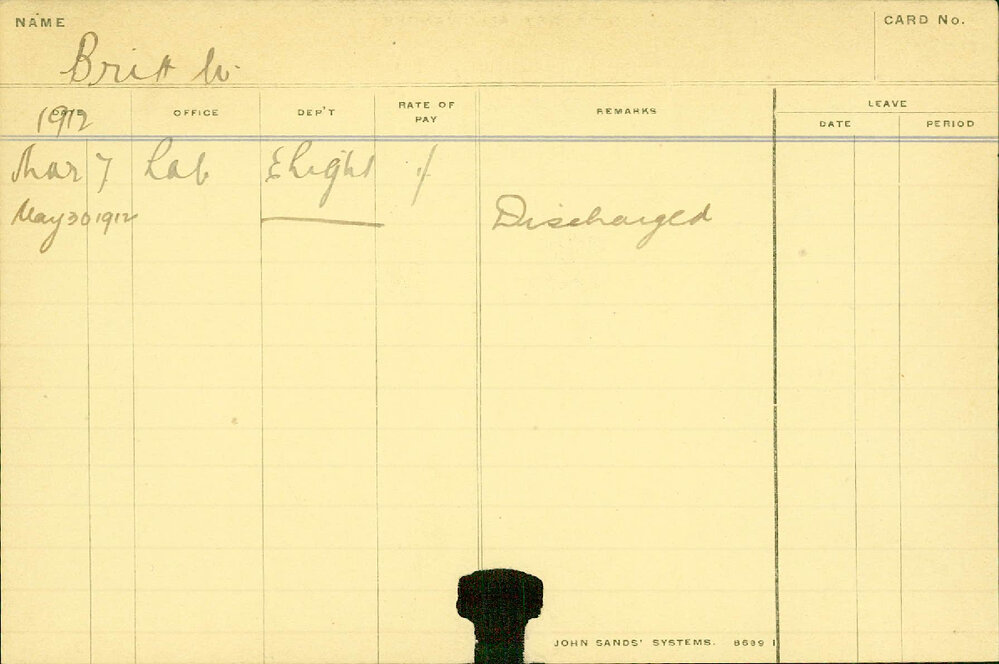 NAME
CARD No.
Britt W.
DATE OFFICE DEP'T RATE OF PAY REMARKS LEAVE
DATE PERIOD
1912
Mar 7 Lab ELight
May 30 1912 Discharged
JOHN SANDS' SYSTEMS. 8699